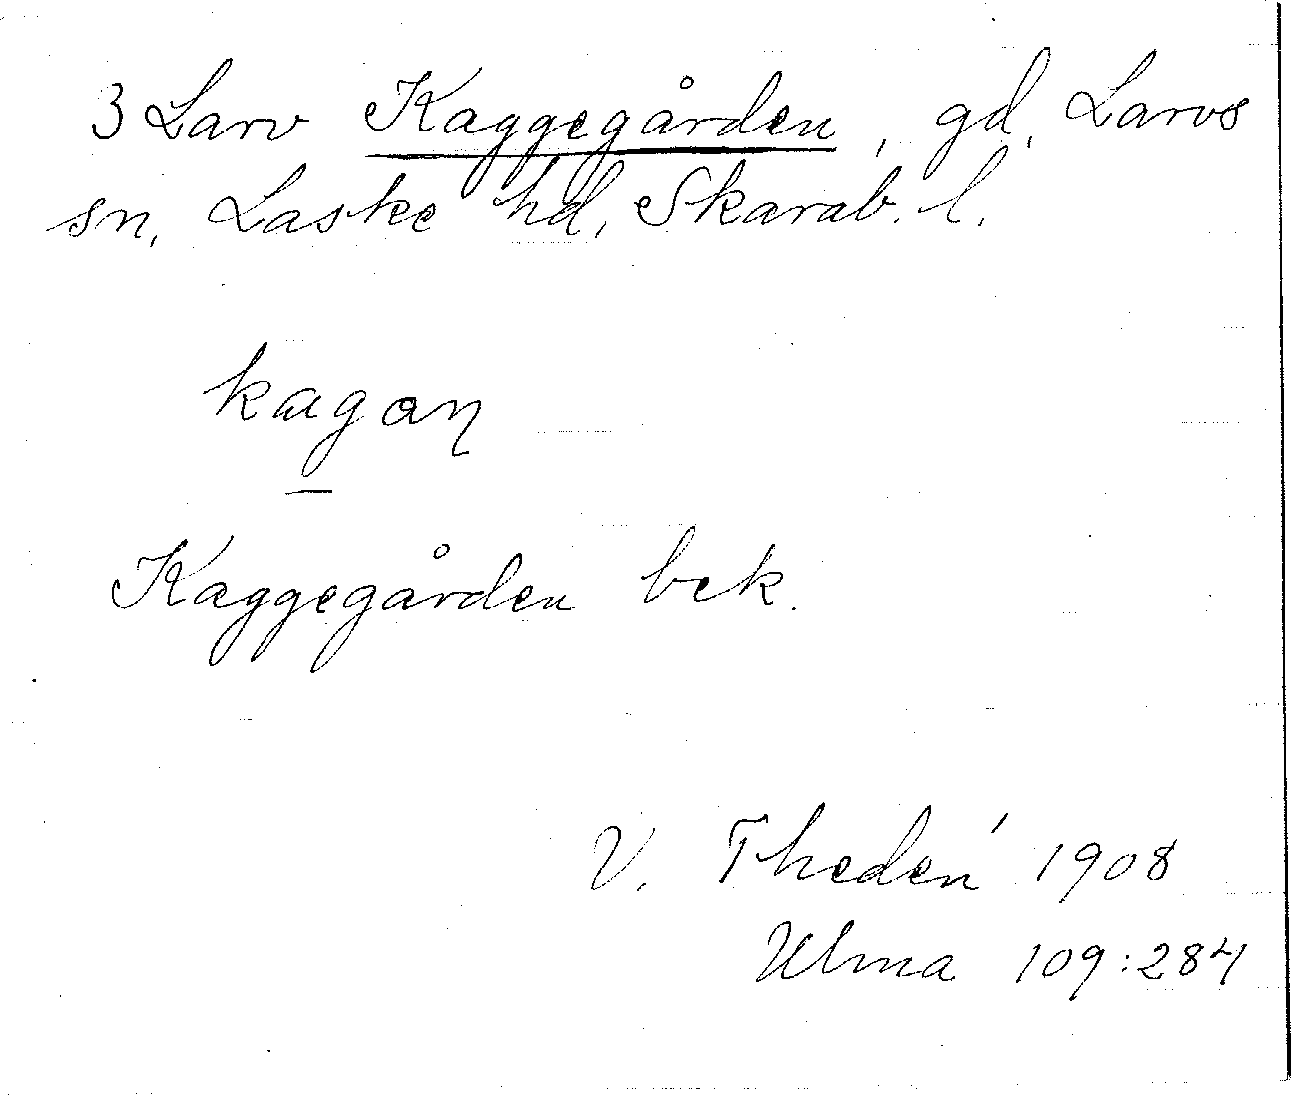 3 Larv Kaggegården, gd, Larvs
sn, Laske hd, Skarab. l.
kægaɳ
Kaggegården bek.
V. Thedén 1908
Ulma 109:284